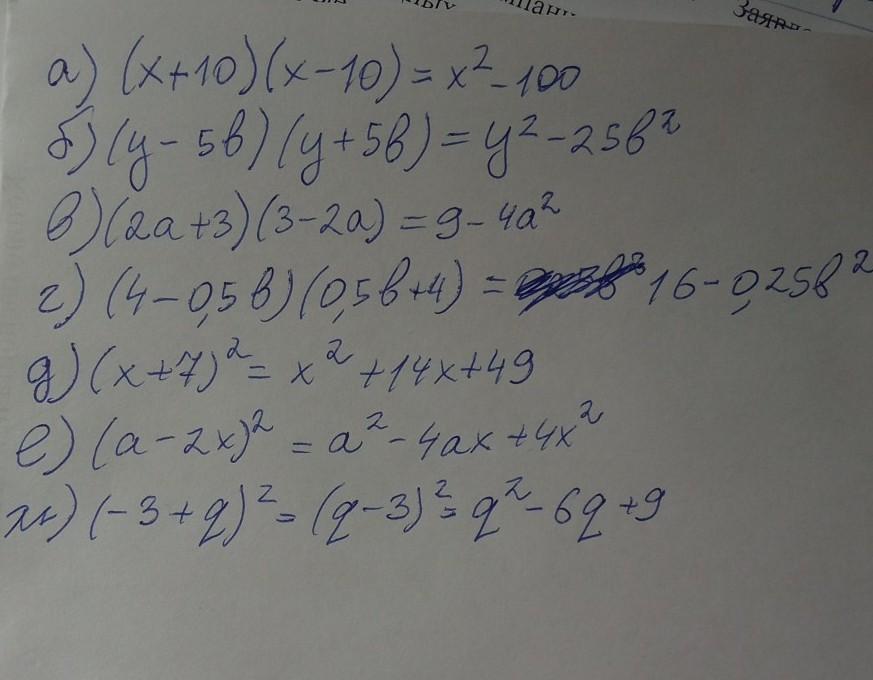 Заявле
а) (x+10)(x-10) = x² - 100
б) (y - 5b)(y + 5b) = y² - 25b²
в) (2a+3)(3-2a) = 9 - 4a²
г) (4 - 0,5b)(0,5b+4) = 16 - 0,25b²
д) (x+7)² = x² + 14x + 49
е) (a - 2x)² = a² - 4ax + 4x²
ж) (-3 + q)² = (q-3)² = q² - 6q + 9